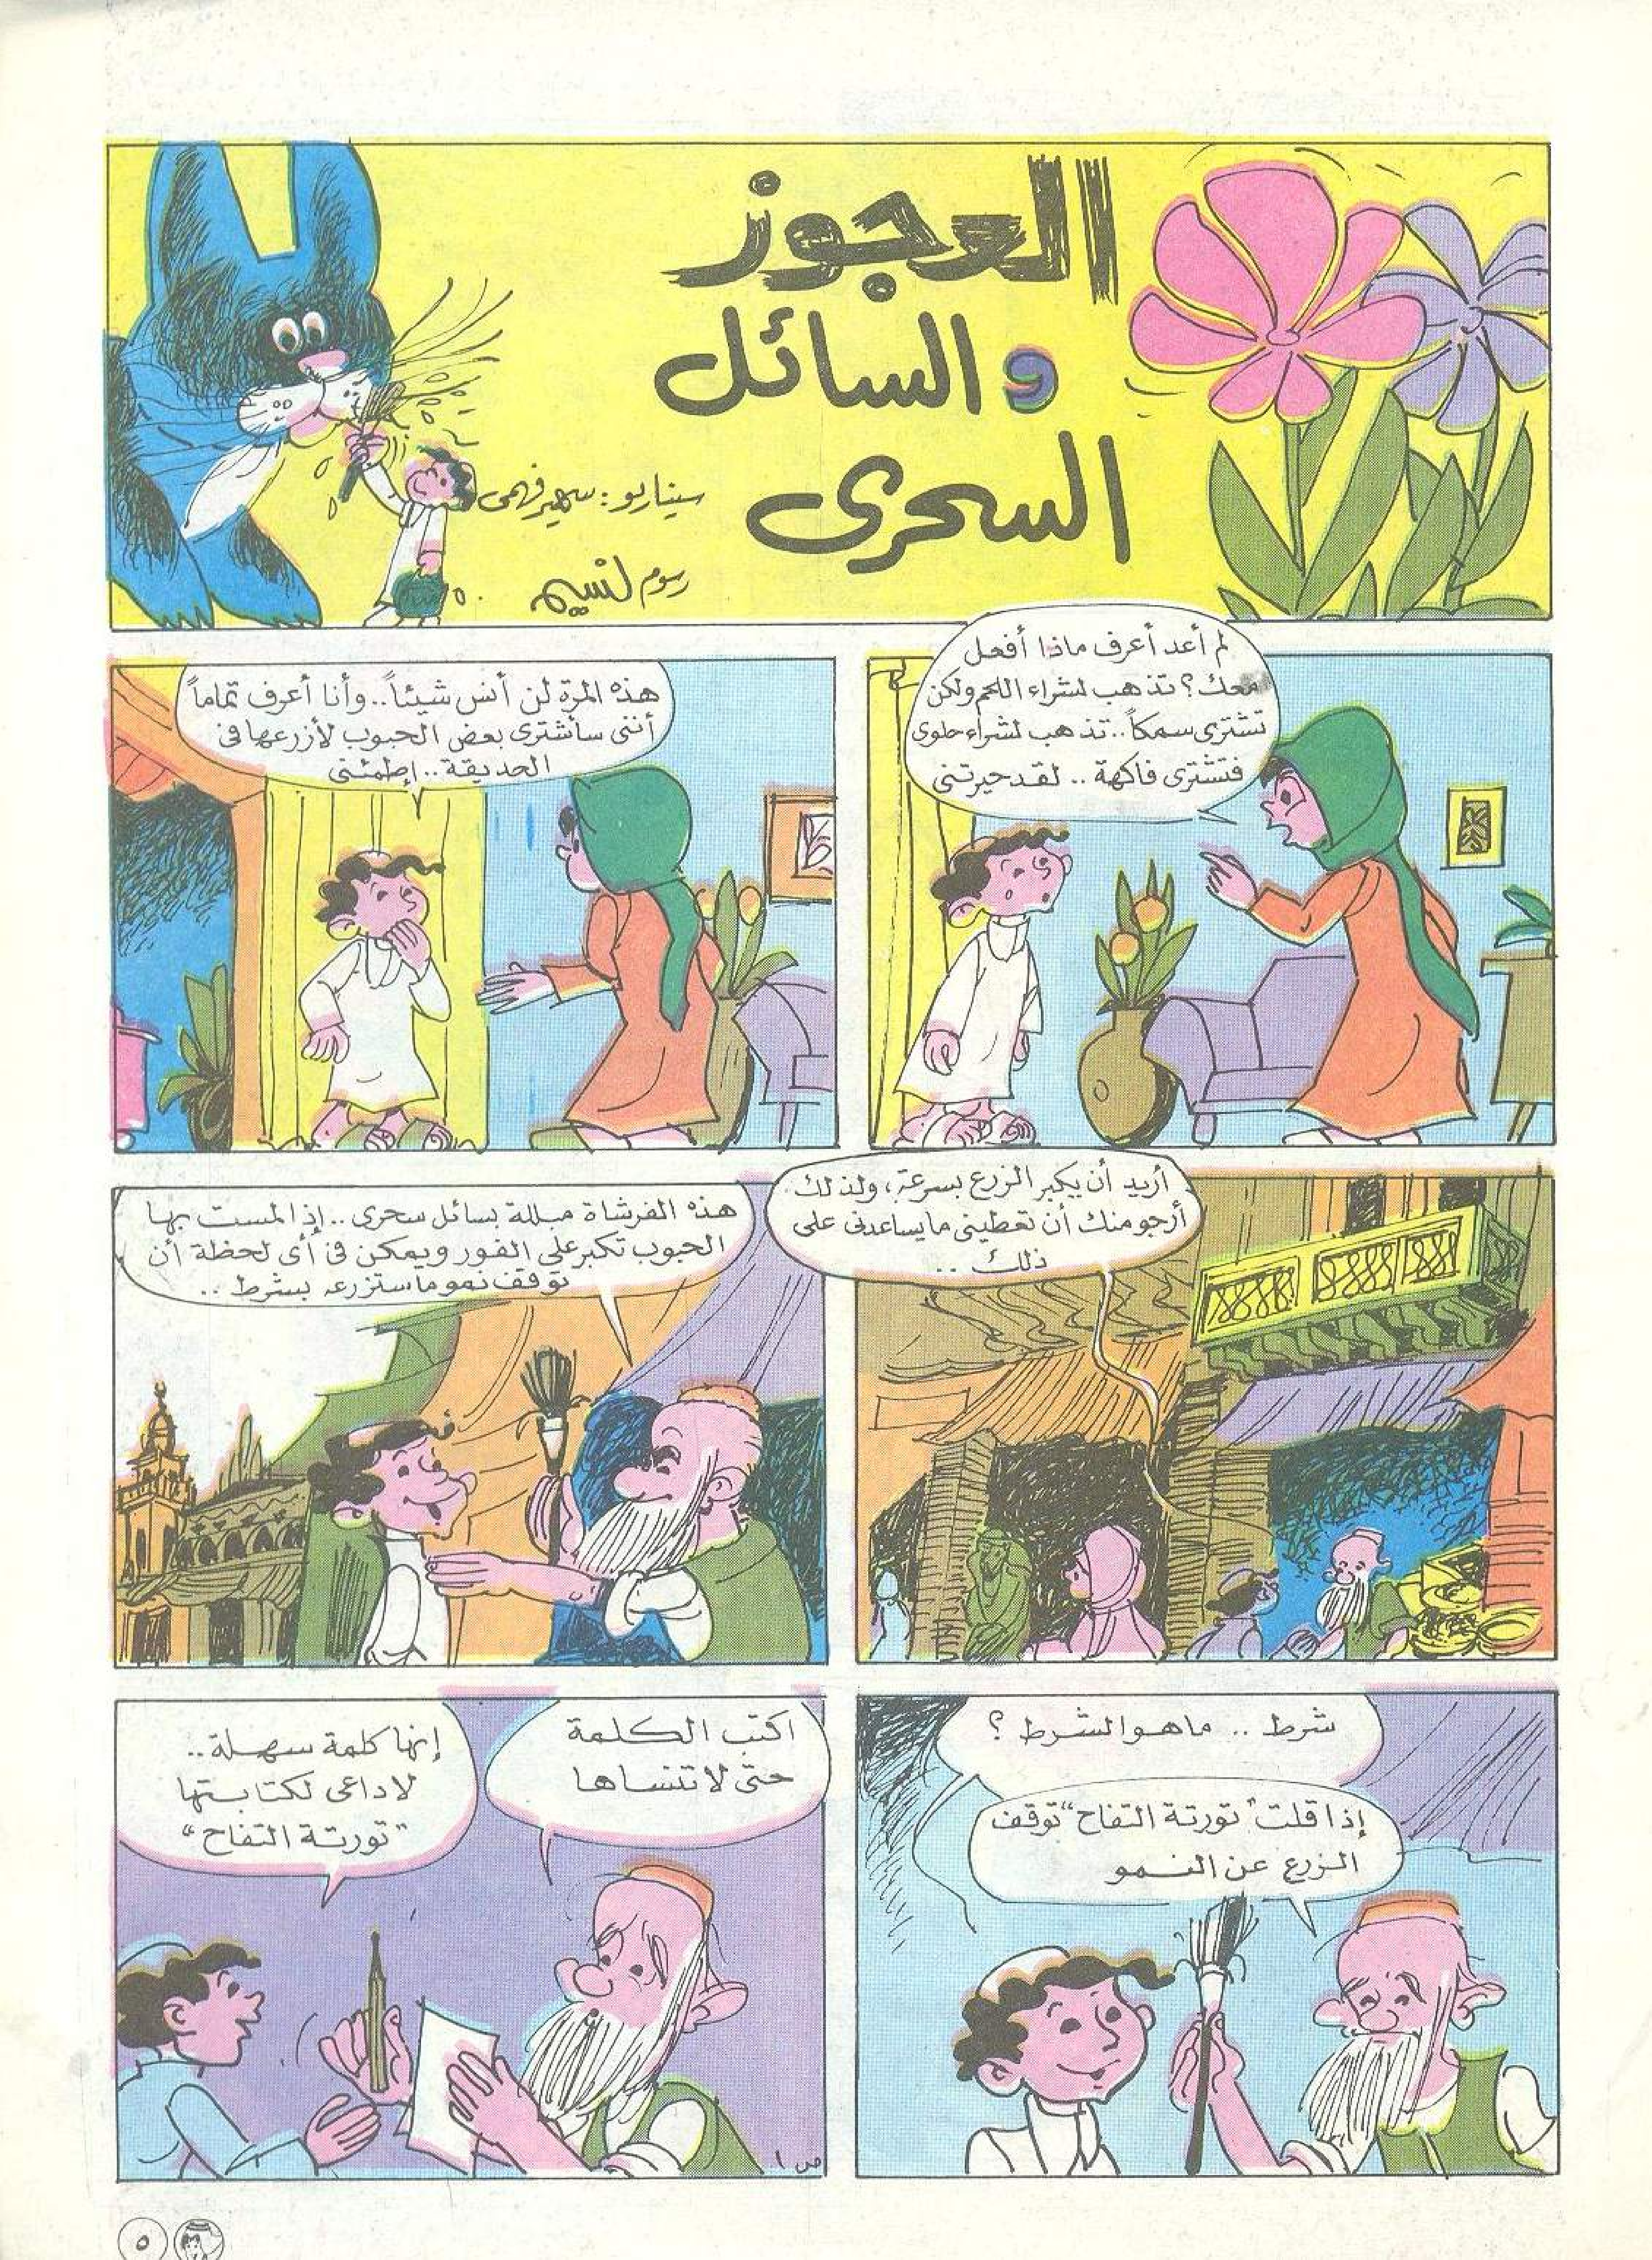 العجوز
و السائل
السحرى
سيناريو : سهير فهمى
رسوم نسيم
لم أعد أعرف ماذا أفعل
معك ؟ تذهب لشراء اللحم ولكن
تشترى سمكاً .. تذهب لشراء حلوى
فتشترى فاكهة .. لقد حيرتنى
هذه المرة لن أنس شيئاً .. وأنا أعرف تماماً
أننى سأشترى بعض الحبوب لأزرعها فى
الحديقة .. إطمئنى
أريد أن يكبر الزرع بسرعة ، ولذلك
أرجو منك أن تعطينى ما يساعدنى على
ذلك ..
هذه الفرشاة مبللة بسائل سحرى .. إذا لمست بها
الحبوب تكبر على الفور ويمكن فى أى لحظة أن
توقف نمو ما ستزرعه بشرط ..
شرط .. ما هو الشرط ؟
إذا قلت "تورتة التفاح" توقف
الزرع عن النمو
اكتب الكلمة
حتى لا تنساها
إنها كلمة سهلة ..
لا داعى لكتابتها
"تورتة التفاح"
ص ١
٥